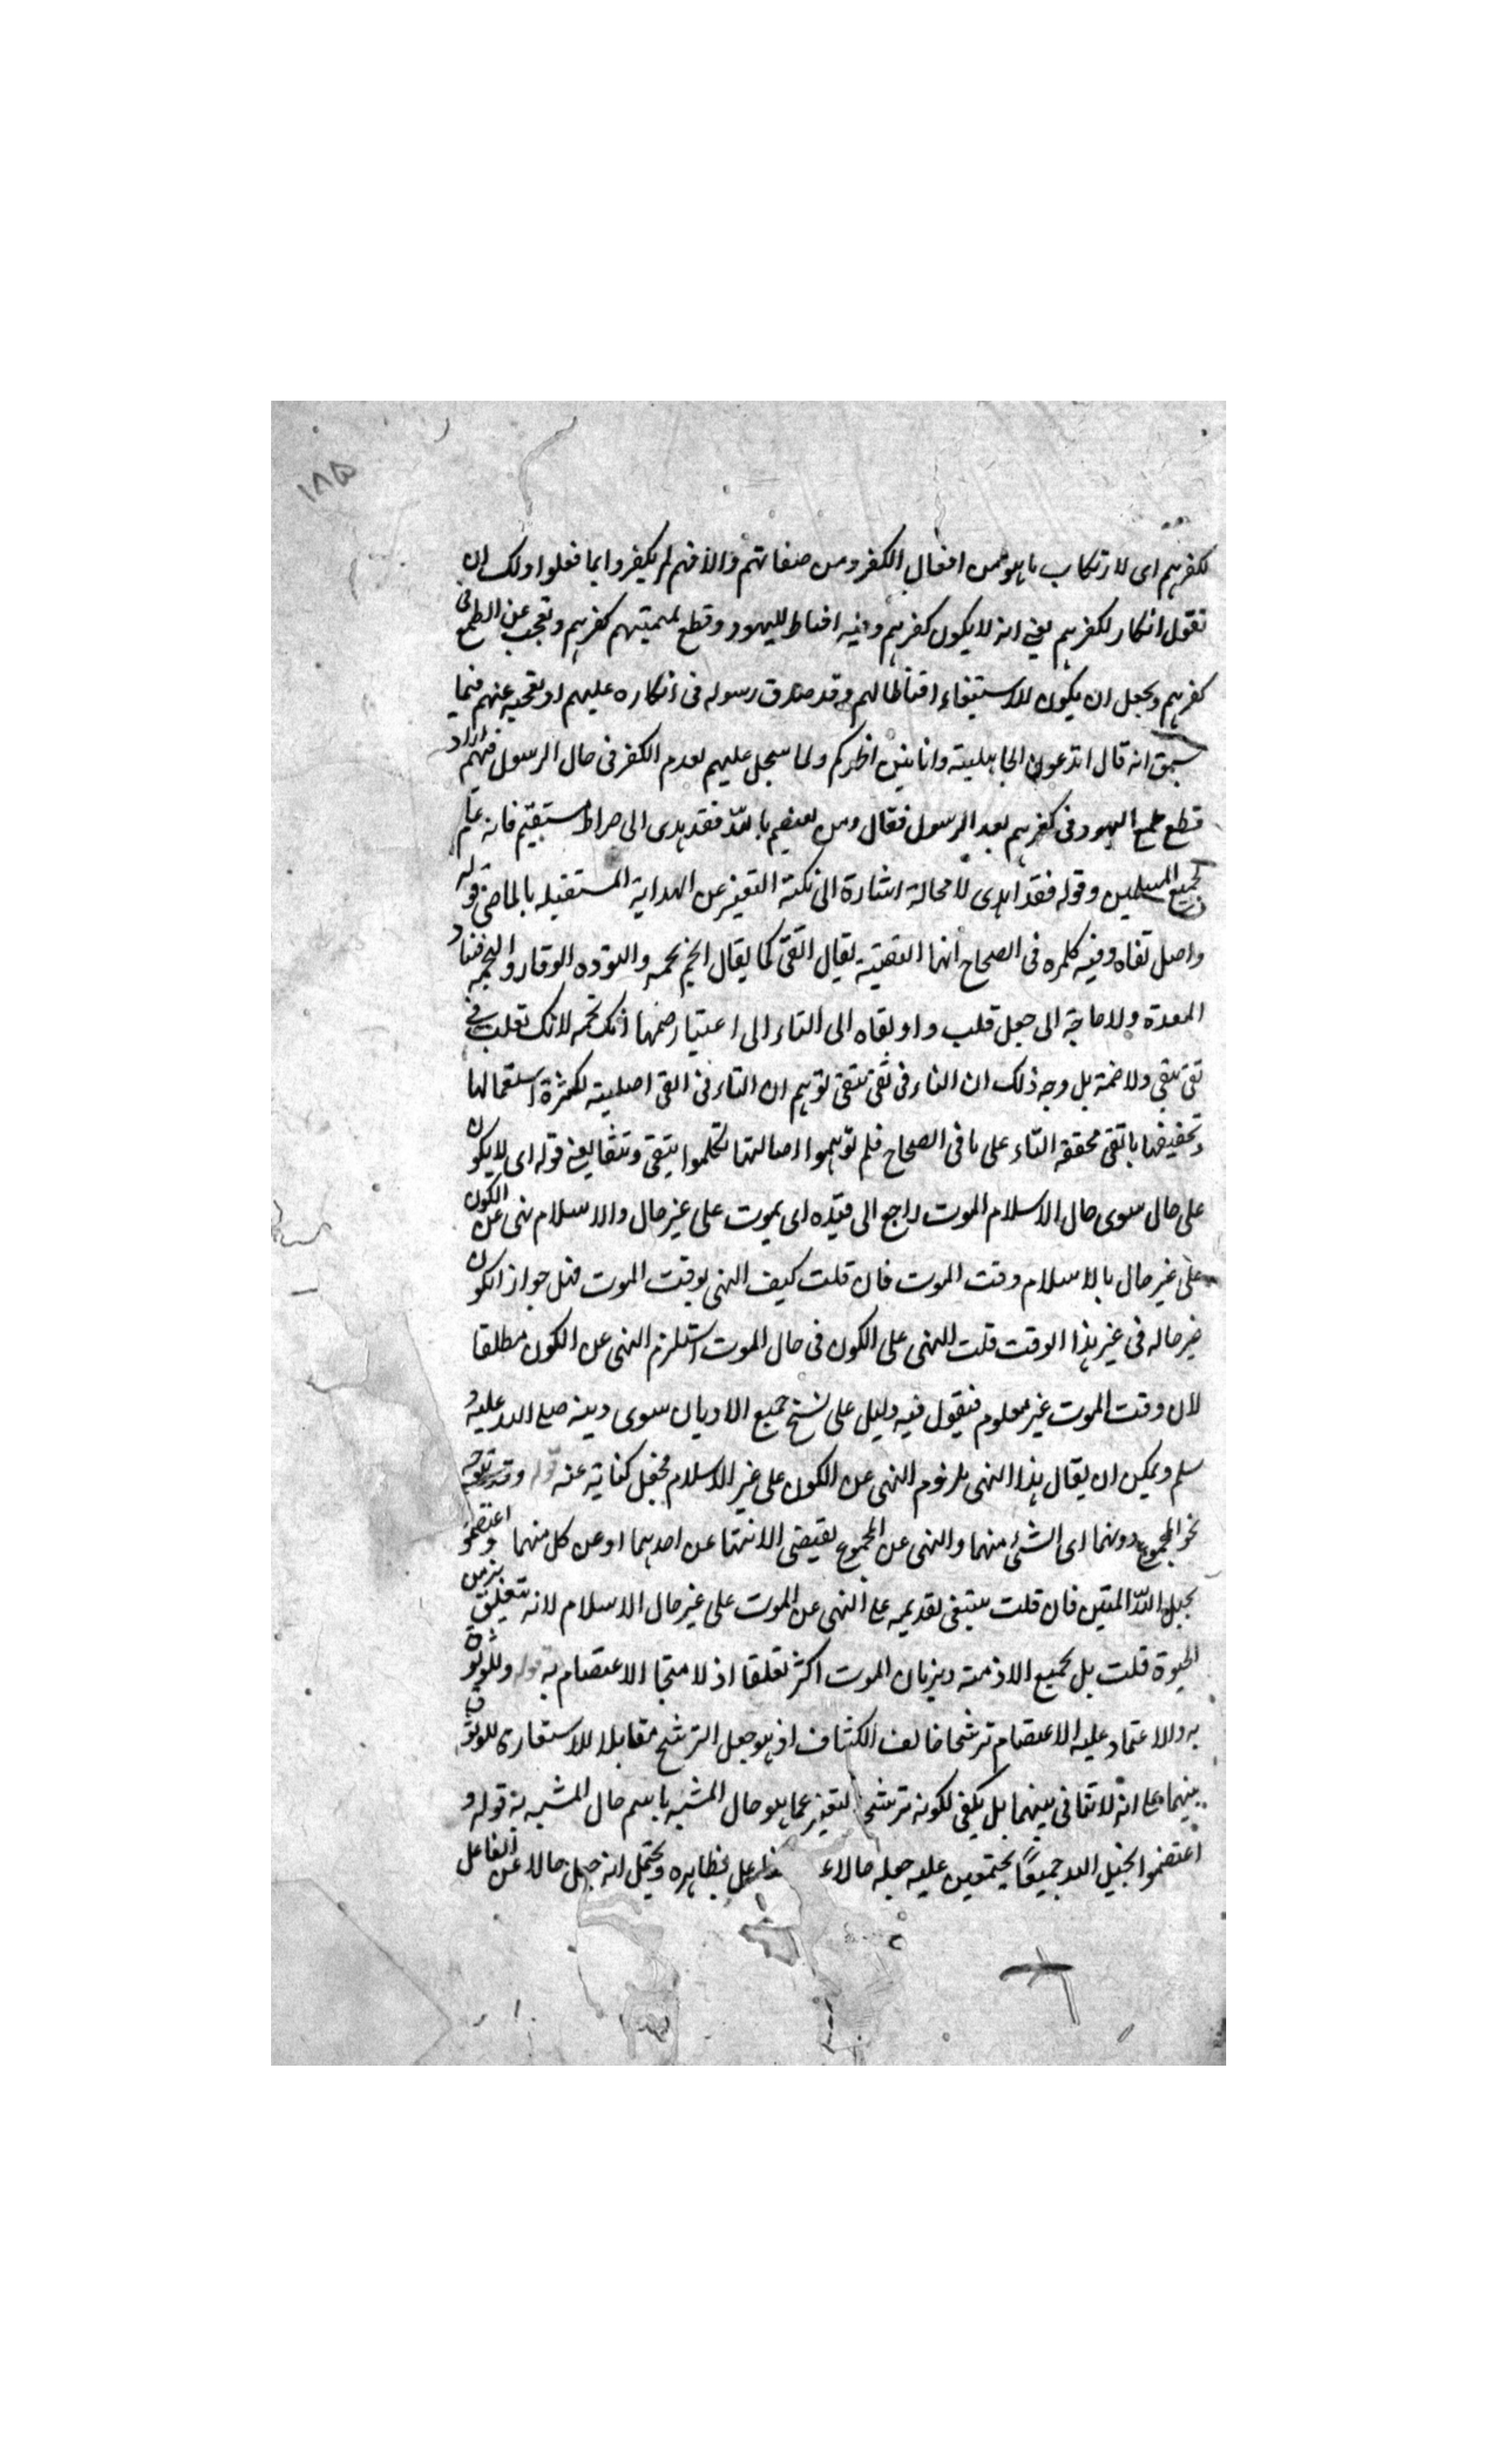 ١٨٥
لكفرهم اى لارتكاب ما هو من افعال الكفر ومن صفاتهم والا فهم لم يكفروا بما فعلوا ولك ان
نقول انكار لكفرهم يعنى انه لا يكون كفرهم وفيه اقناط لليهود وقطع لمنيتهم كفرهم وتعجب عن الطمع فى
كفرهم ويجعل ان يكون للاستيفاء اقناطا لهم وقد صدق رسوله فى انكاره عليهم او تعجبه عنهم فيما
سبق انه قال اتدعون الجاهلية وانا بين اظهركم ولما سجل عليهم بعدم الكفر فى حال الرسول فيهم اراد
قطع طمع اليهود فى كفرهم بعد الرسول فقال ومن يعتصم بالله فقد هدى الى صراط مستقيم فانه عام
لجميع المسلمين وقوله فقد اهدى لا محالة اشارة الى نكتة التعبير عن الهداية المستقبله بالماضى قوله
واصل تقاه وقيه كلمره فى الصحاح انها التقية يقال اتقى كما يقال اتخم تخمه والتوده الوقار والتخمه فساد
المعدة ولا حاجة الى جعل قلب واو تقاه الى التاء الى اعتبار ضمها لانك تقلب فى
تقى يتقى ولا ضمة بل وجه ذلك ان التاء فى تقى يتقى توهم ان التاء فى اتقى اصلية لكثرة استعمالها
وتخفيفها باتقى محققه التاء على ما فى الصحاح فلم توهموا اصالتها تكلموا يتقى وتتقا يعنى قوله اى لا يكون
على حال سوى حال الاسلام الموت راجع الى قيده اى يموت على غير حال والاسلام نهى عن الكون
على غير حال بالاسلام وقت الموت فان قلت كيف النهى بوقت الموت فهل جواز الكون
غير حاله فى غير هذا الوقت قلت النهى على الكون فى حال الموت استلزم النهى عن الكون مطلقا
لان وقت الموت غير معلوم فيقول فيه دليل على نسخ جميع الاديان سوى دينه صلى الله عليه و
سلم ويمكن ان يقال هذا النهى ملزوم النهى عن الكون على غير الاسلام فجعل كناية عنه قوله وقد يتوجه
نحو المجموع دونهما اى الشئ منهما والنهى عن المجموع يقتضى الانتها عن احدهما او عن كل منهما واعتصموا
بحبل الله المتين فان قلت ينبغى تقديمه على النهى عن الموت على غير حال الاسلام لانه يتعلق بزمن
الحيوة قلت بل بجميع الازمنة وبزمان الموت اكثر تعلقا اذ لا منجا الا الاعتصام به قوله وللوثوق
به والاعتماد عليه الاعتصام ترشيحا خالف الكشاف اذ هو جعل الترشيح مقابلا للاستعارة للوثوق
بينهما على انه لا تنافى بينهما بل يكفى لكونه ترشيحا لتعبير عما هو حال المشبه باسم حال المشبه به قوله و
اعتصموا بحبل الله جميعًا مجتمعين عليه جعله حالا بظاهره ويحتمل انه جعل حالا عن الفاعل